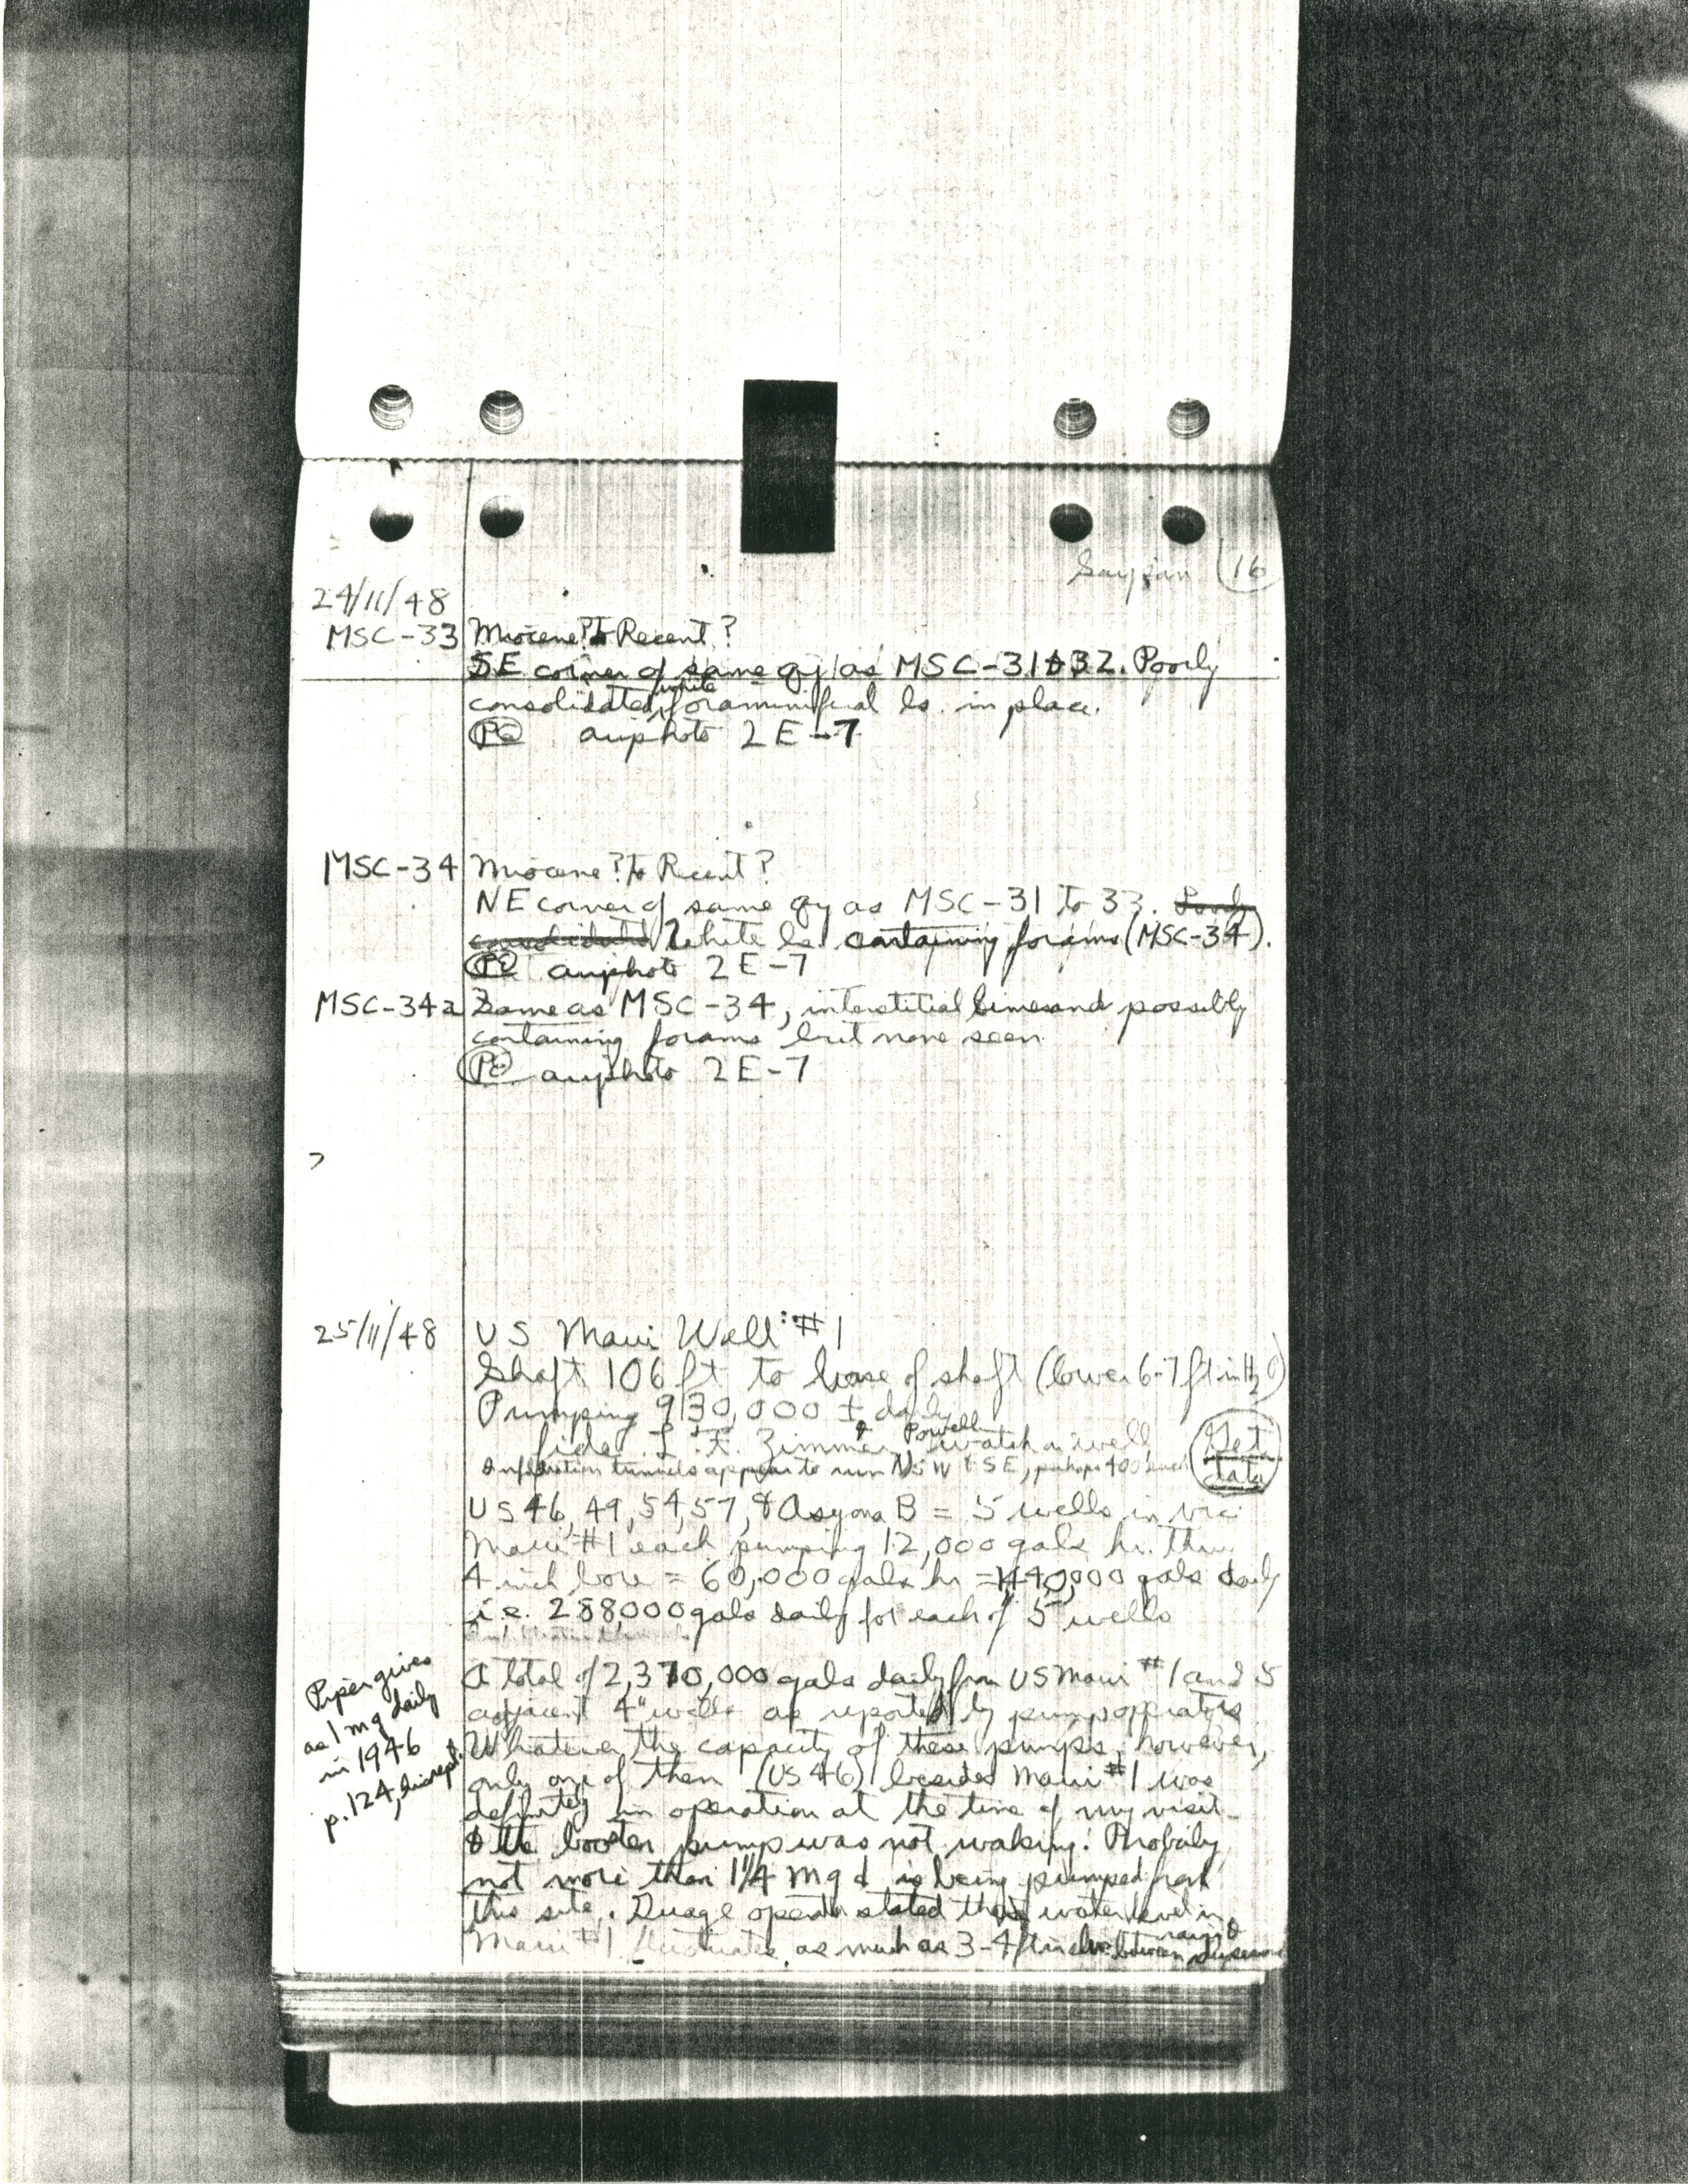 Saipan 16
24/11/48
MSC-33 Miocene? to Recent?
SE corner of same qy as MSC-31 & 32. Poorly
consolidated, white foraminiferal ls. in place.
airphoto 2E-7
MSC-34 Miocene? to Recent?
NE corner of same qy as MSC-31 to 33. Poorly
consolidated White ls. containing forams (MSC-34).
airphoto 2E-7
MSC-34a Same as MSC-34, interstitial limesand possibly
containing forams but none seen
airphoto 2E-7
25/11/48 US Maui Well #1
Shaft 106 ft to base of shaft (lower 6-7 ft in H2O)
Pumping 930,000 ± daily
fide L. F. Zimmer & Powell watch on well
Get data
Infiltration tunnels appear to run NW & SE, perhaps 400' each
US 46, 49, 54, 57, & B = 5 wells in vic.
Maui #1 each pumping 12,000 gals hr. thru
4 inch bore = 60,000 gals hr = 1440,000 gals daily
i.e. 288,000 gals daily for each of 5 wells
A total of 2,370,000 gals daily from US Maui #1 and 5
adjacent 4" wells as reported by pump operators
Whatever the capacity of these pumps, however,
only one of them (US 46) besides Maui #1 was
definitely in operation at the time of my visit
& the booster pump was not working. Probably
not more than 1¼ mgd is being pumped from
this site. operator stated that water level in
Maui #1 fluctuates as much as 3-4 ft in between rainy &
Piper gives
as 1 mg daily
in 1946
p. 124,